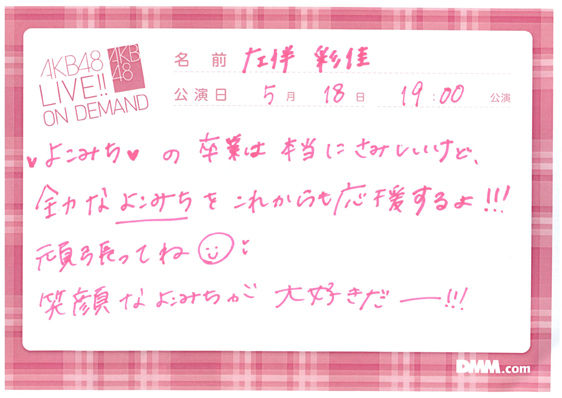 AKB48
LIVE!!
ON DEMAND
AKB
48
名前 左伴 彩佳
公演日 5月 18日 19:00 公演
♥よこみち♥の卒業は本当にさみしいけど、
全力なよこみちをこれからも応援するよ!!!
頑張ってね
笑顔なよこみちが大好きだー!!!
DMM.com